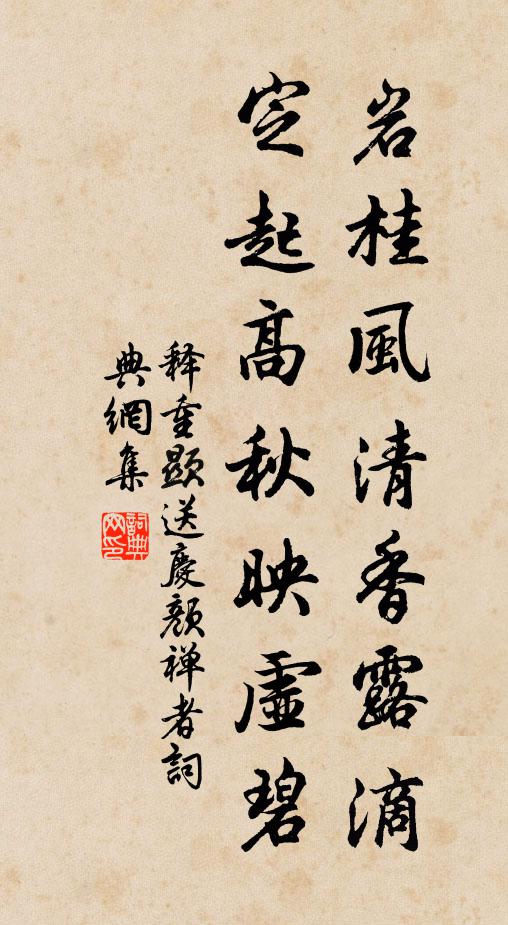 岩桂風清香露滴
定起高秋映虛碧
釋重顯送慶顏禅者詞
典網集
詞典
网印